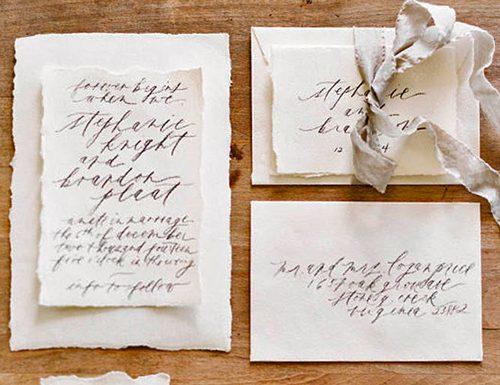 forever begins
when we
stephanie
knight
and
brandon
plaat
unite in marriage
the 6th of december
two thousand fourteen
five o'clock in the evening
info to follow
stephanie
and
brandon
12
mr. and mrs. logan price
oak grove
stoney creek
virginia